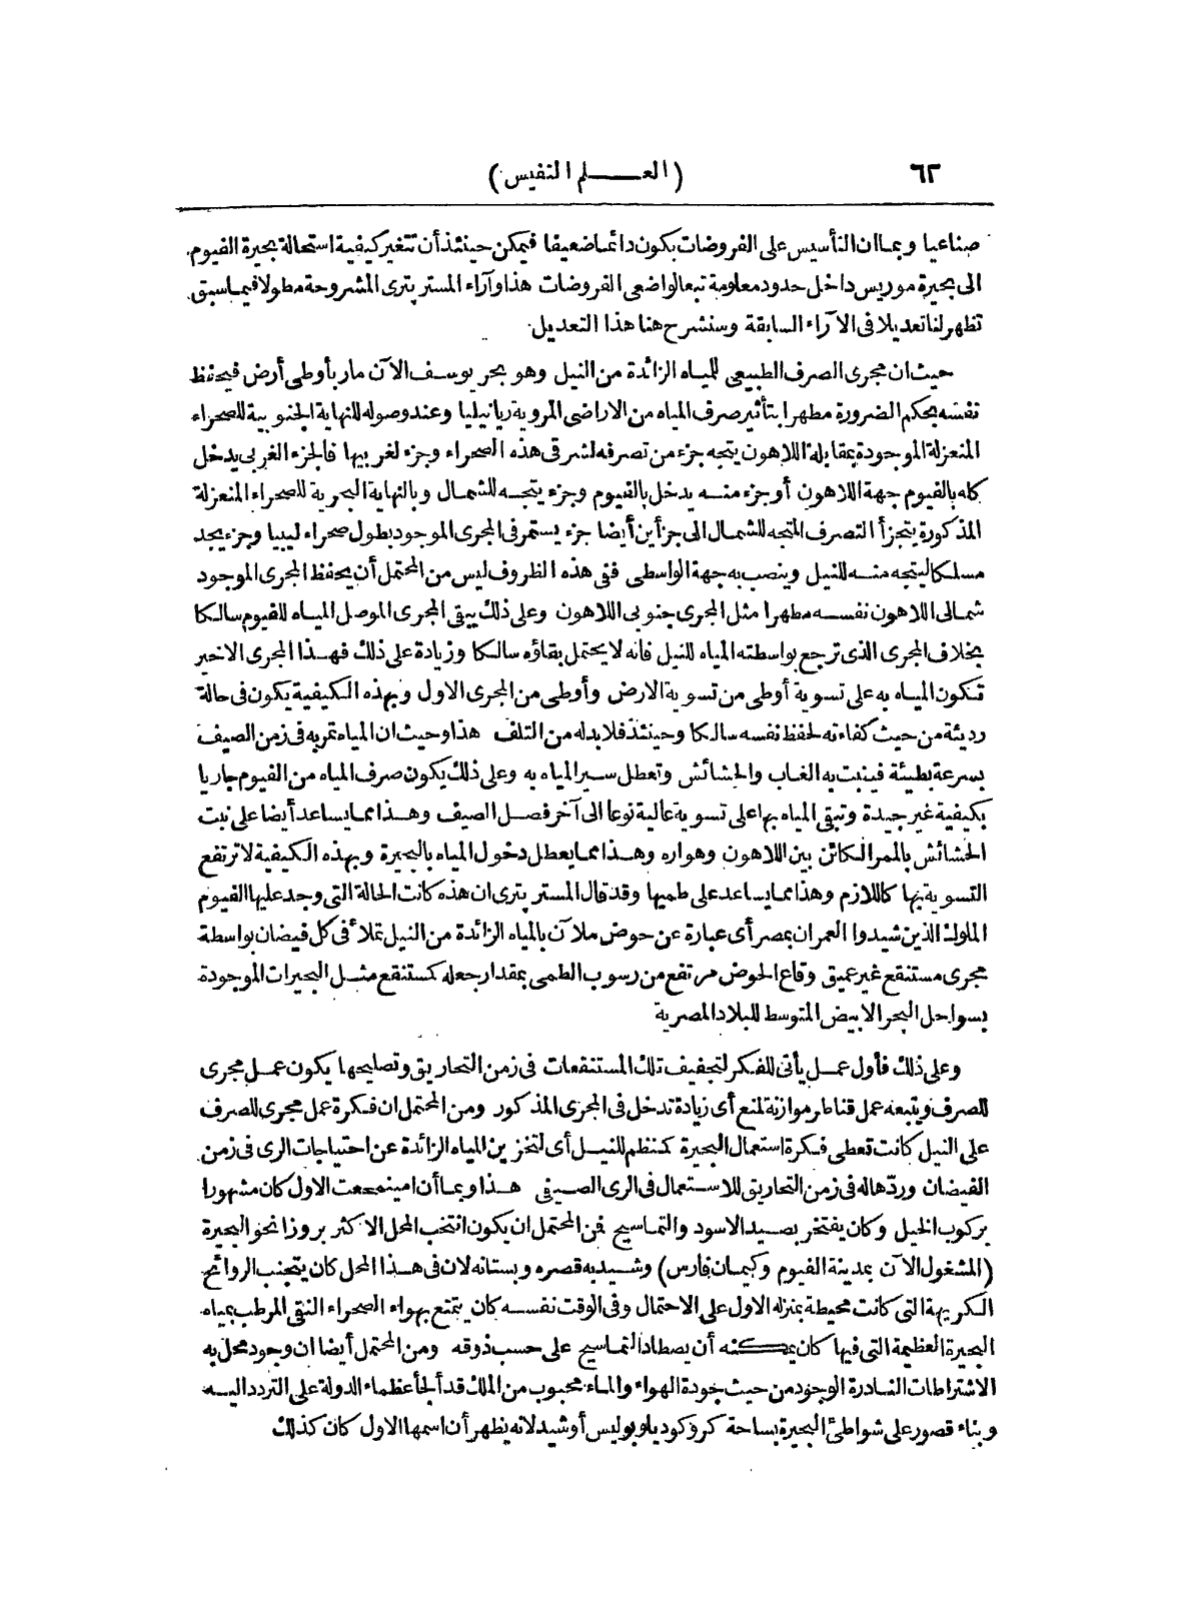 ٦٢ (العـلم النفيس)
صناعيا وبما ان التأسيس على الفروضات يكون دائما ضعيفا فيمكن حينئذ أن تتغير كيفية استحالة بحيرة الفيوم
الى بحيرة موريس داخل حدود معلومة تبعا لواضعى الفروضات هذا وآراء المستر بترى المشروحة مطولا فيما سبق
تظهر لنا تعديلا فى الآراء السابقة وسنشرح هنا هذا التعديل
حيث ان مجرى الصرف الطبيعى للمياه الزائدة من النيل وهو بحر يوسف الآن مار بأوطى أرض فيحفظ
نفسه بحكم الضرورة مطهرا بتأثير صرف المياه من الاراضى المروية ريا نيليا وعند وصوله للنهاية الجنوبية للصحراء
المنعزلة الموجودة بمقابلة اللاهون يتجه جزء من تصرفه لشرقى هذه الصحراء وجزء لغربيها فالجزء الغربى يدخل
كله بالفيوم جهة اللاهون أو جزء منه يدخل بالفيوم وجزء يتجه للشمال وبالنهاية البحرية للصحراء المنعزلة
المذكورة يتجزأ التصرف المتجه للشمال الى جزأين أيضا جزء يستمر فى المجرى الموجود بطول صحراء ليبيا وجزء يجد
مسلكا ليتجه منه للنيل وينصب به جهة الواسطى ففى هذه الظروف ليس من المحتمل أن يحفظ المجرى الموجود
شمالى اللاهون نفسه مطهرا مثل المجرى جنوبى اللاهون وعلى ذلك يبقى المجرى الموصل المياه للفيوم سالكا
بخلاف المجرى الذى ترجع بواسطته المياه للنيل فانه لا يحتمل بقاؤه سالكا وزيادة على ذلك فهذا المجرى الاخير
تكون المياه به على تسوية أوطى من تسوية الارض وأوطى من المجرى الاول وبهذه الكيفية يكون فى حالة
رديئة من حيث كفاءته لحفظ نفسه سالكا وحينئذ فلا بد له من التلف هذا وحيث ان المياه تمر به فى زمن الصيف
بسرعة بطيئة فينبت به الغاب والحشائش وتعطل سير المياه به وعلى ذلك يكون صرف المياه من الفيوم جاريا
بكيفية غير جيدة وتبقى المياه بها على تسوية عالية نوعا الى آخر فصل الصيف وهذا مما يساعد أيضا على نبت
الحشائش بالممر الكائن بين اللاهون وهواره وهذا مما يعطل دخول المياه بالبحيرة وبهذه الكيفية لا ترتفع
التسوية بها كاللازم وهذا مما يساعد على طميها وقد قال المستر بترى ان هذه كانت الحالة التى وجد عليها الفيوم
الملوك الذين شيدوا العمران بمصر أى عبارة عن حوض ملآن بالمياه الزائدة من النيل تملأ فى كل فيضان بواسطة
مجرى مستنقع غير عميق وقاع الحوض مرتفع من رسوب الطمى بمقدار جعله كمستنقع مثل البحيرات الموجودة
بسواحل البحر الابيض المتوسط للبلاد المصرية
وعلى ذلك فأول عمل يأتى للفكر لتجفيف تلك المستنقعات فى زمن التحاريق وتصليحها يكون عمل مجرى
للصرف ويتبعه عمل قناطر موازنة لمنع أى زيادة تدخل فى المجرى المذكور ومن المحتمل ان فكرة عمل مجرى للصرف
على النيل كانت تعطى فكرة استعمال البحيرة كمنظم للنيل أى لتخزين المياه الزائدة عن احتياجات الرى فى زمن
الفيضان وردها له فى زمن التحاريق للاستعمال فى الرى الصيفى هذا وبما أن امينمحعت الاول كان مشهورا
بركوب الخيل وكان يفتخر بصيد الاسود والتماسيح فمن المحتمل ان يكون انتخب المحل الاكثر بروزا نحو البحيرة
(المشغول الآن بمدينة الفيوم وكيمان فارس) وشيد به قصره وبستانه لان فى هذا المحل كان يتجنب الروائح
الكريهة التى كانت محيطة بمنزله الاول على الاحتمال وفى الوقت نفسه كان يتمتع بهواء الصحراء النقى المرطب بمياه
البحيرة العظيمة التى فيها كان يمكنه أن يصطاد التماسيح على حسب ذوقه ومن المحتمل أيضا ان وجود محل به
الاشتراطات النادرة الوجود من حيث جودة الهواء والماء محبوب من الملك قد ألجأ عظماء الدولة على التردد اليه
وبناء قصور على شواطئ البحيرة بساحة كروكوديلوبوليس أو شيد لانه يظهر أن اسمها الاول كان كذلك